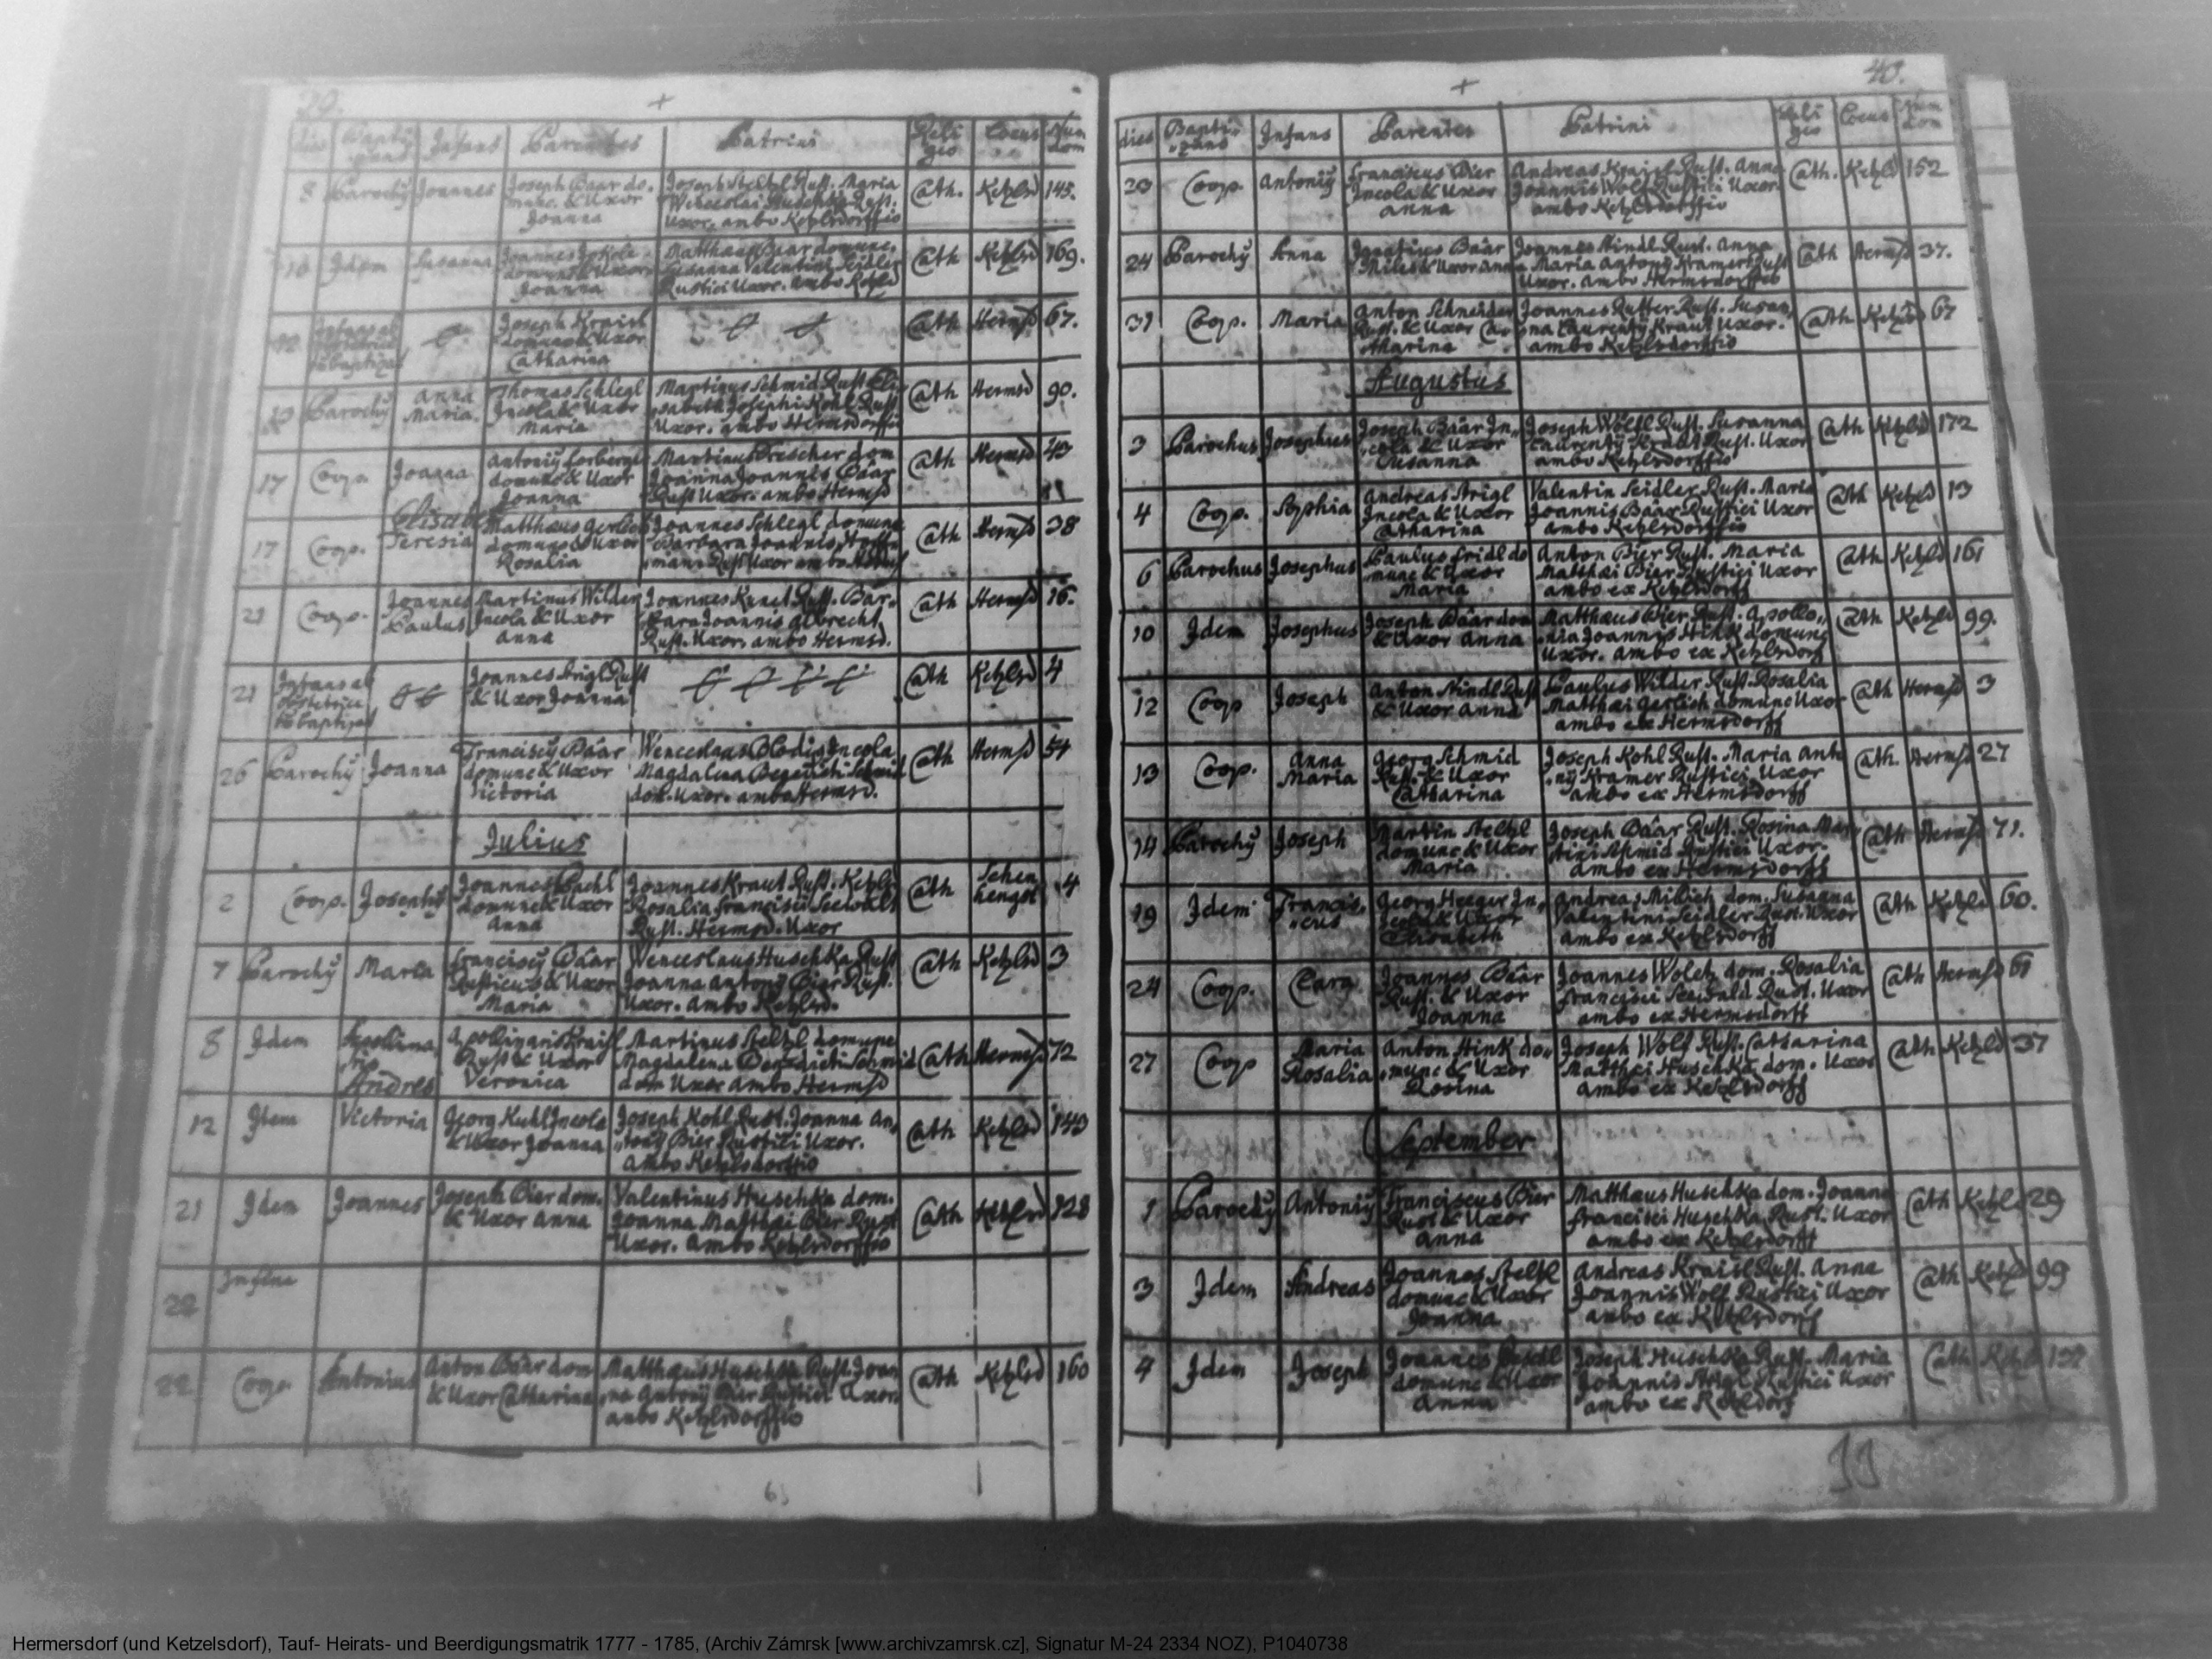 40.
dies Infans Parentes Patrinus Religio Locus
8 Parochy Joannes Joseph Baar do-
munc. & Uxor
Joanna
Joseph Steltzl Rust. Maria
Wenceslai Huschka Rust.
Uxor. ambo Ketzlsdorffio
Cath. Ketzlsd 145.
Idem Susanna Joannes
domunc & Uxor
Joanna
Matthaeus Baar domunc.
Susanna Valentini Seidler
Rustici Uxor. ambo Ketzlsd
Cath Ketzlsd 169.
Infans ab
obstetrice
Joseph Kraisl
domunc & Uxor
Catharina
Cath Hermsd 67.
Parochy Anna
Maria.
Thomas Schlegl
Incola & Uxor
Maria
Martinus Schmid Rust Eli-
sabeth Josephi Kohl Rust
Uxor. ambo Hermsdorffio
Cath Hermsd 90.
17 Coop. Joanna
domunc & Uxor
Joanna
Martinus Drescher dom
Joanna Joannis Bäar
Rust Uxor. ambo Hermsd
Cath Hermsd 43
17 Coop. Teresia
Matthaeus Gerlich
domunc & Uxor
Rosalia
Joannes Schlegl domunc
Barbara Joannis
Rust Uxor ambo
Cath Hermsd 38
21 Coop. Joannes
Paulus
Martinus Wilder
Incola & Uxor
Anna
Joannes Rust. Bar-
bara Joannis Albrecht
Rust. Uxor. ambo Hermsd.
Cath Hermsd 16.
21 Infans ab
obstetrice
Joannes Strigl Rust
& Uxor Joanna
Cath Ketzlsd 4
26 Parochy Joanna
Franciscy Bäar
domunc & Uxor
Victoria
Wenceslaus Blodig Incola
Magdalena Benedicti Schmid
dom. Uxor. ambo Hermsd.
Cath Hermsd 54
Julius
2 Coop. Josephy
Joannes Pachl
domunc & Uxor
Anna
Joannes Kraut Rust. Ketzls
Rosalia Francisci Seewald
Rust. Hermsd. Uxor
Cath Schen
hengst 4
7 Parochy Maria
Franciscy Bäar
Rusticus & Uxor
Maria
Wenceslaus Huschka Rust
Joanna Antony Bier Rust.
Uxor. ambo Ketzlsd.
Cath Ketzlsd 3
8 Idem
Andres
Apollinaris Kraisl
Rust & Uxor
Veronica
Martinus Steltzl domunc
Magdalena Benedicti Schmid
dom Uxor ambo Hermsd
Cath Hermsd 72
12 Item Victoria
Georg Kuhl Incola
& Uxor Joanna
Joseph Kohl Rust. Joanna An,
tony Bier Rustici Uxor.
ambo Ketzlsdorffio
Cath Ketzlsd 143
21 Idem Joannes
Joseph Bier dom.
& Uxor Anna
Valentinus Huschka dom.
Joanna Matthaei Bier Rust
Uxor. ambo Ketzlsdorffio
Cath Ketzlsd 128
22
22 Coop. Antonius
Anton Bäar dom
& Uxor Catharina
Matthaeus Huschka Rust. Joan
na Antony Bier Rustici Uxor.
ambo Ketzlsdorffio
Cath Ketzlsd 160
dies Bapti-
zans Infans Parentes Patrini Religio Locus Num
dom
23 Coop. Antoniy
Franciscus Bier
Incola & Uxor
Anna
Andreas Kraisl Rust. Anna
Joannis Wolf Rustici Uxor.
ambo Ketzlsdorffio
Cath. Ketzlsd 152
24 Parochy Anna
Ignatius Bäar
Miles & Uxor Anna
Joannes Stindl Rust. Anna
Maria Antony Kramer Rust
Uxor. ambo Hermsdorffio
Cath Hermsd 37.
31 Coop. Maria
Anton Schneider
Rust. & Uxor Ca-
tharina
Joannes Rust. Susan,
na Laurenty Kraut Uxor.
ambo Ketzlsdorffio
Cath Ketzlsd 67
Augustus
3 Parochus Josephus
Joseph Bäar In-
cola & Uxor
Susanna
Joseph Wölfl Rust. Susanna
Laurenty Kraut Rust. Uxor
ambo Ketzlsdorffio
Cath Ketzlsd 172
4 Coop. Sophia
Andreas Strigl
Incola & Uxor
Catharina
Valentin Seidler Rust. Maria
Joannis Bäar Rustici Uxor
ambo Ketzlsdorffio
Cath Ketzlsd 13
6 Parochus Josephus
Paulus Fridl do
munc & Uxor
Maria
Anton Bier Rust. Maria
Matthaei Bier Rustici Uxor
ambo ex Ketzlsdorff
Cath Ketzlsd 161
10 Idem Josephus
Joseph Bäar dom
& Uxor Anna
Matthaeus Bier Rust. Apollo,,
nia Joannis Hink domunc
Uxor. ambo ex Ketzlsdorf
Cath Ketzlsd 99.
12 Coop Joseph
Anton Stindl Rust
& Uxor Anna
Paulus Wilder Rust. Rosalia
Matthaei Gerlich domunc Uxor
ambo ex Hermsdorff
Cath Hermsd 3
13 Coop. Anna
Maria
Georg Schmid
Rust. & Uxor
Catharina
Joseph Kohl Rust. Maria Anto
ny Kramer Rustici Uxor
ambo ex Hermsdorff
Cath. Hermsd 27
14 Parochy Joseph
Martin Steltzl
domunc & Uxor
Maria
Joseph Bäar Rust. Rosina Mar,
tini Schmid Rustici Uxor.
ambo ex Hermsdorff
Cath Hermsd 71.
19 Idem Francis,
cus
Georg Heeger In,
cola & Uxor
Elisabeth
Andreas Milich dom. Susanna
Valentini Seidler Rust. Uxor
ambo ex Ketzlsdorff
Cath Ketzlsd 60.
24 Coop. Clara
Joannes Bäar
Rust. & Uxor
Joanna
Joannes Woletz dom. Rosalia
Francisci Seewald Rust. Uxor
ambo ex Hermsdorff
Cath Hermsd 61
27 Coop Maria
Rosalia
Anton Hink do,,
munc & Uxor
Rosina
Joseph Wolf Rust. Catharina
Matthaei Huschka dom. Uxor
ambo ex Ketzlsdorff
Cath Ketzlsd 37
September
1 Parochy Antoniy
Franciscus Bier
Rust & Uxor
Anna
Matthaeus Huschka dom. Joanna
Francisci Huschka Rust. Uxor
ambo ex Ketzlsdorff
Cath Ketzlsd 29
3 Idem Andreas
Joannes Steltzl
domunc & Uxor
Joanna
Andreas Kraisl Rust. Anna
Joannis Wolf Rustici Uxor
ambo ex Ketzlsdorff
Cath Ketzlsd 99
4 Idem Joseph
Joannes
domunc & Uxor
Anna
Joseph Huschka Rust. Maria
Joannis Strigl Rustici Uxor
ambo ex Ketzlsdorf
Cath Ketzlsd
Hermersdorf (und Ketzelsdorf), Tauf- Heirats- und Beerdigungsmatrik 1777 - 1785, (Archiv Zámrsk [www.archivzamrsk.cz], Signatur M-24 2334 NOZ), P1040738